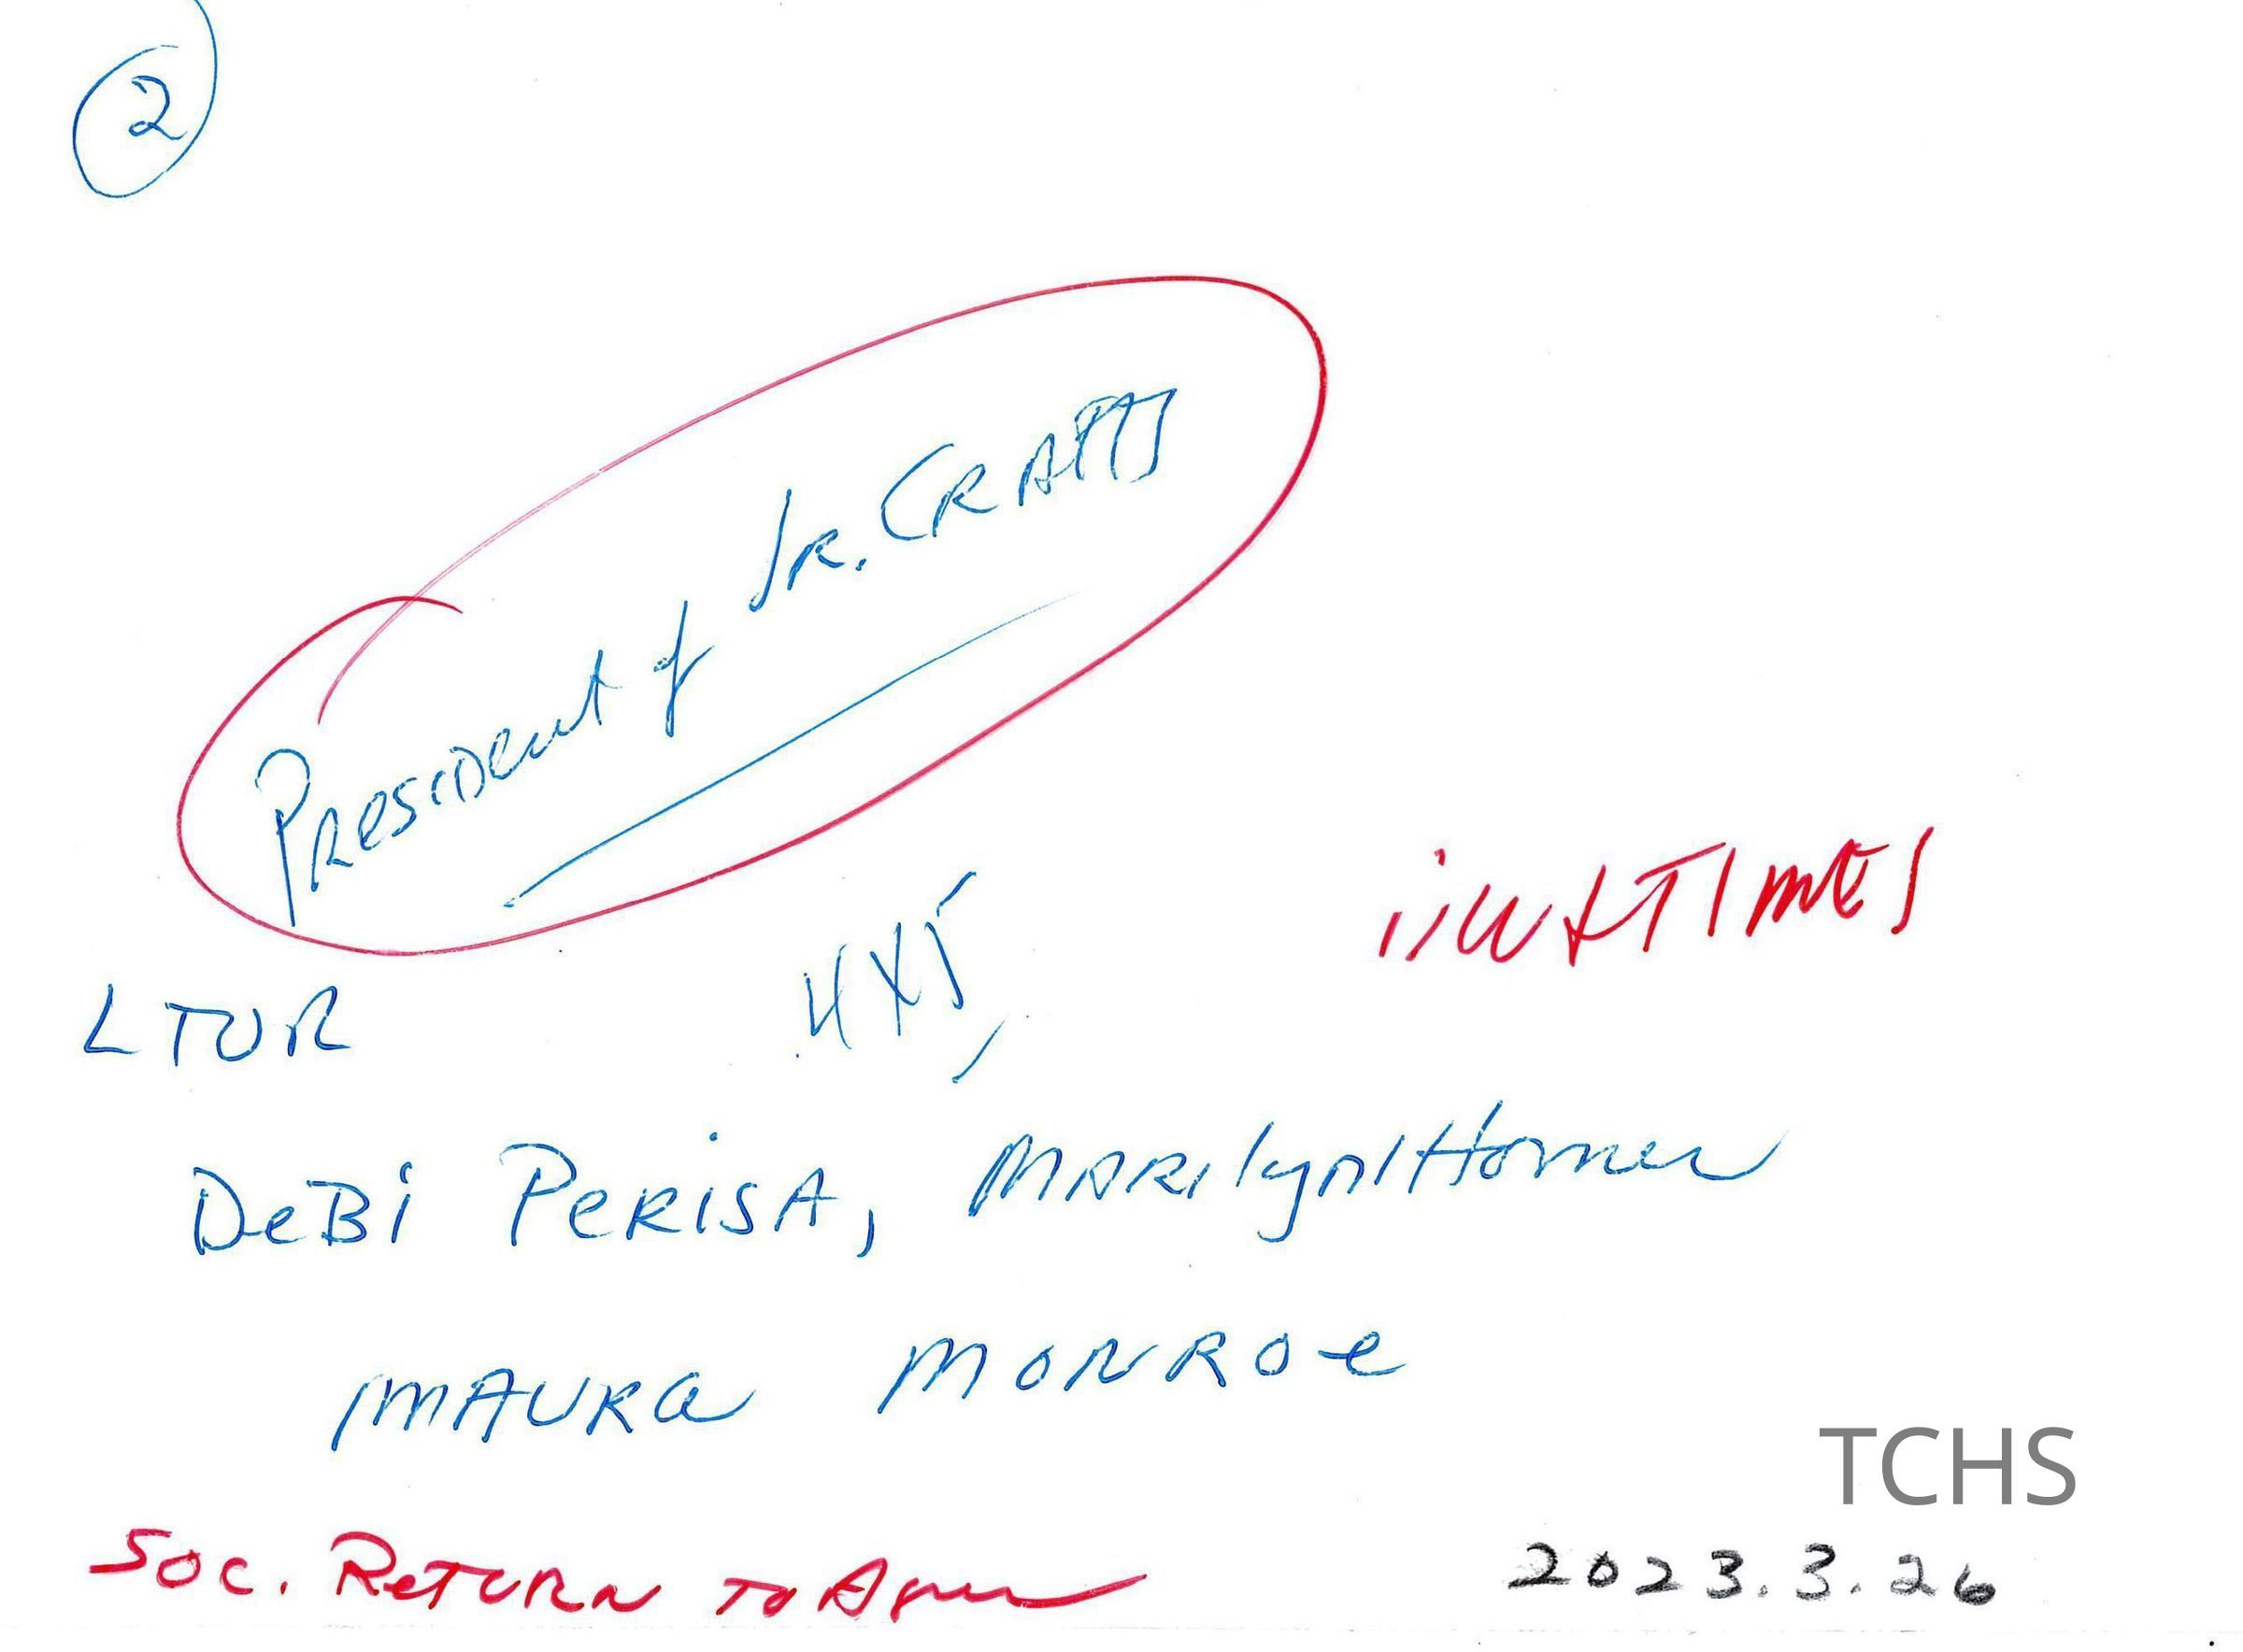 2
President of JR. CRAFTS
TIMES
LTOR 4X5
DeBi PeRiSA, MARilyn Horner
MAURa MONROe
TCHS
Soc. ReTURN To
2023.3.26